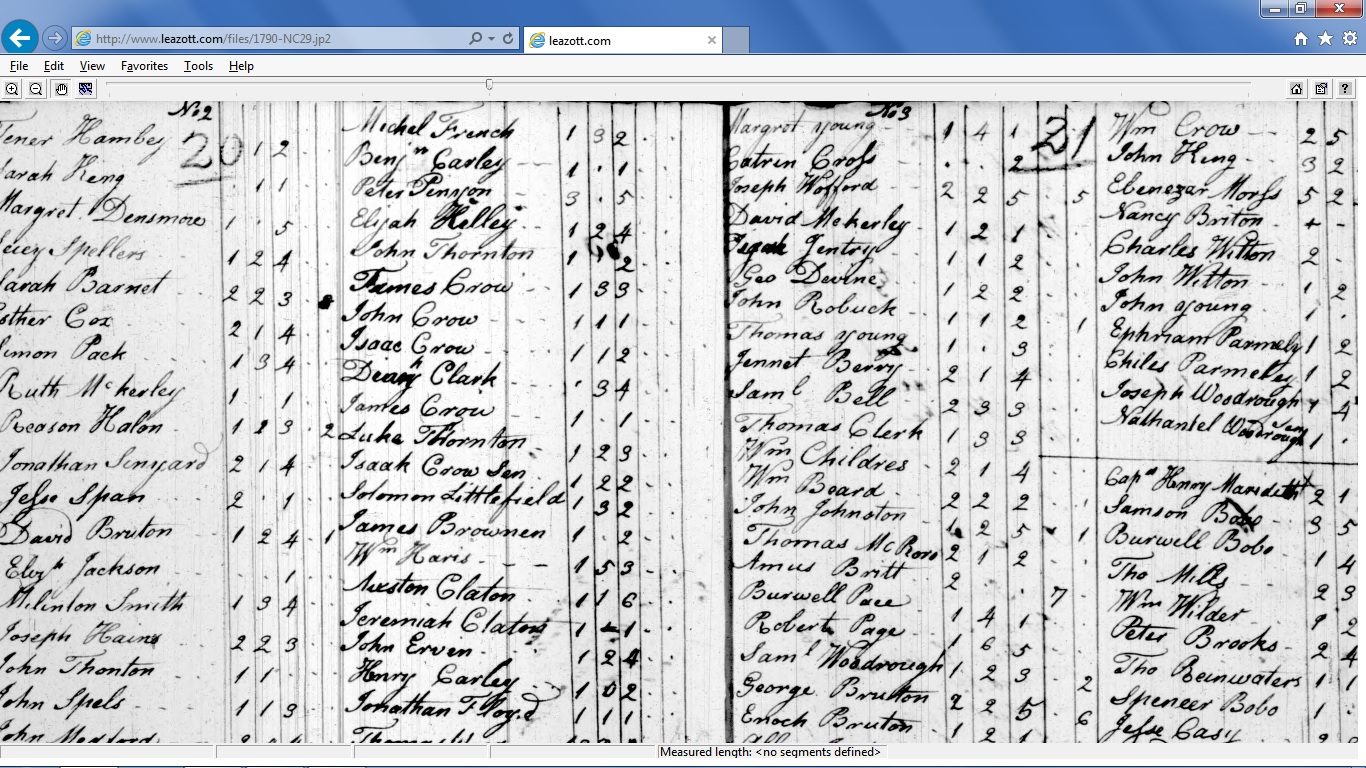 http://www.leazott.com/files/1790-NC29.jp2
leazott.com
File Edit View Favorites Tools Help
No 2
20
Hambey 1 2
Sarah Keng 1 1
Margret Densmore 1 . 5
Spellers 1 2 4
Sarah Barnet 2 2 3
Esther Cox 2 1 4
Simon Pack 1 3 4
Ruth Mckerley 1 . 1
Reason Halon 1 2 3 . 2
Jonathan Senyard 2 1 4
Jesse Span 2 . 1
David Bruton 1 2 4 . 1
Elizth Jackson . 1
Milinton Smith 1 3 4
Joseph Hains 2 2 3
John Thonton 1 1
John Spels 1 1 3
John Medford
Michel French 1 3 2
Benjn Earley 1 . 1
Peter Pinyon 3 . 5
Elijah Kelley 1 2 4
John Thornton 1 2
James Crow 1 3 3
John Crow 1 1 1
Isaac Crow 1 1 2
Clark . 3 4
James Crow 1 . 1
Luke Thornton 1 2 3
Isaak Crow Sen 1 2 2
Solomon Littlefield 1 3 2
James Brownen 1 . 2
Wm Haris 1 5 3
Claton 1 1 6
Jeremiah Claton 1 - 1
John Erven 1 2 4
Henry Earley 1 0 2
Jonathan Floyd 1 1 1
Thomas
No 3
Margret young 1 4 1
Catrin Cross . . 2
Joseph Wofford 2 2 5 . 5
David Mckerley 1 2 1
Gentry 1 1 2
Geo Devine 1 2 2
John Robuck 1 1 2 . 1
Thomas young 1 . 3
Jennet Berry 2 1 4
Saml Bell 2 3 3
Thomas Clerk 1 3 3
Wm Childres 2 1 4
Wm Beard 2 2 2
John Johnston 1 2 5 . 1
Thomas McRoro 2 1 2
Amus Britt 2
Burwell Pace . 7
Robert Page 1 4 1
Saml Woodrough 1 6 5
George Bruton 1 2 3 . 2
Enoch Bruton 2 2 5 . 6
1 2 1
21
Wm Crow 2 5
John Keng 3 2
Ebenezar Morss 5 2
Nancy Briton + -
Charles Witton 2 -
John Witton 1 2
John young 1 .
Ephriam Parmely 1 2
Chiles Parmeley 1 2
Joseph Woodrough 1 4
Nathaniel Woodrough Sen 1 .
Capn Henry Maredith 2 1
Samson Bobo 3 5
Burwell Bobo 1 4
Tho Mills 2 3
Wm Wilder 1 2
Peter Brooks 2 4
Tho Reinwaters 1 1
Spenceer Bobo 1
Jesse Casy
Measured length: <no segments defined>